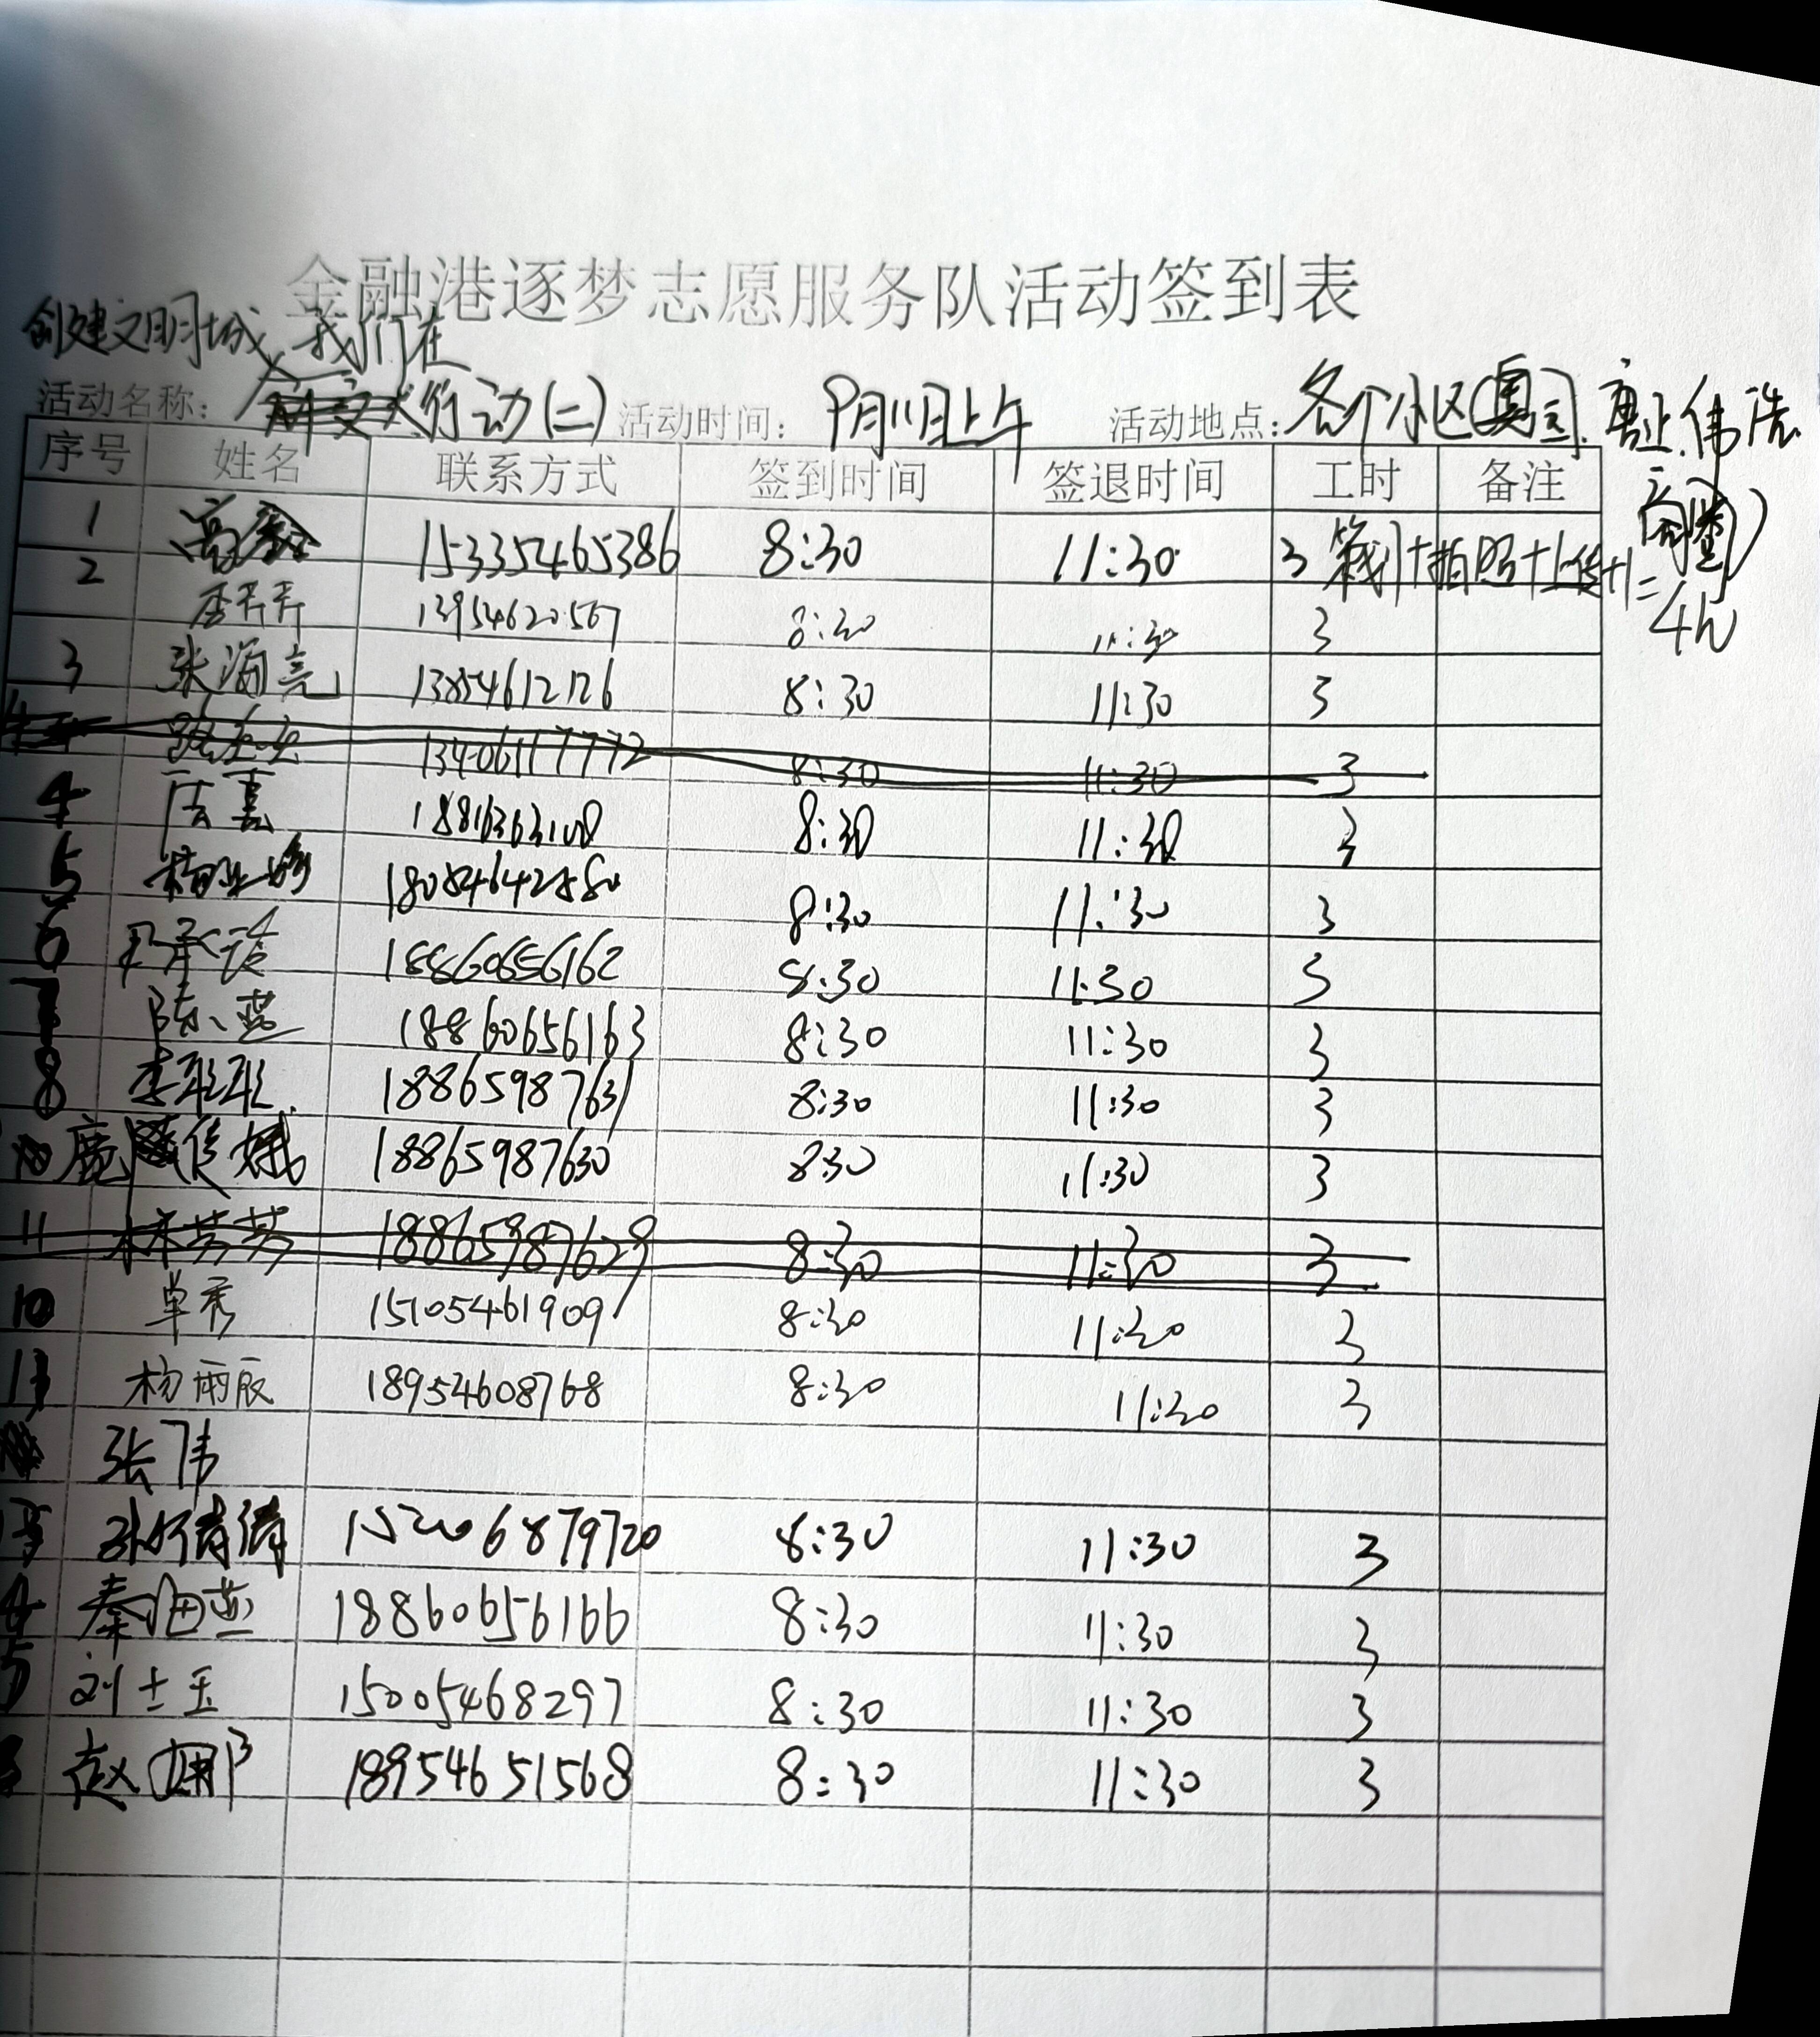 金融港逐梦志愿服务队活动签到表
创建文明城,我们在
活动名称: 行动(二) 活动时间: 9月11日上午 活动地点: 各个小区(奥 伟浩
序号 姓名 联系方式 签到时间 签退时间 工时 备注
1 高鑫 15335465386 8:30 11:30 3 策划+拍照+上传+1=4h
2 李卉卉 13954620567 8:30 11:30 3
3 张海亮 13854612126 8:30 11:30 3
13406117772 8:30 11:30 3
4 8:30 11:30 3
5 8:30 11:30 3
6 尹承 18860656162 8:30 11:30 3
陈燕 18860656163 8:30 11:30 3
8 李 18865987631 8:30 11:30 3
鹿 18865987630 8:30 11:30 3
11 林芳芳 18865987629 8:30 11:30 3
10 单秀 15105461909 8:30 11:30 3
杨雨辰 18954608768 8:30 11:30 3
张伟
孙倩倩 15206879720 8:30 11:30 3
秦海燕 18860656166 8:30 11:30 3
5 刘士玉 15005468297 8:30 11:30 3
赵娜 18954651568 8:30 11:30 3